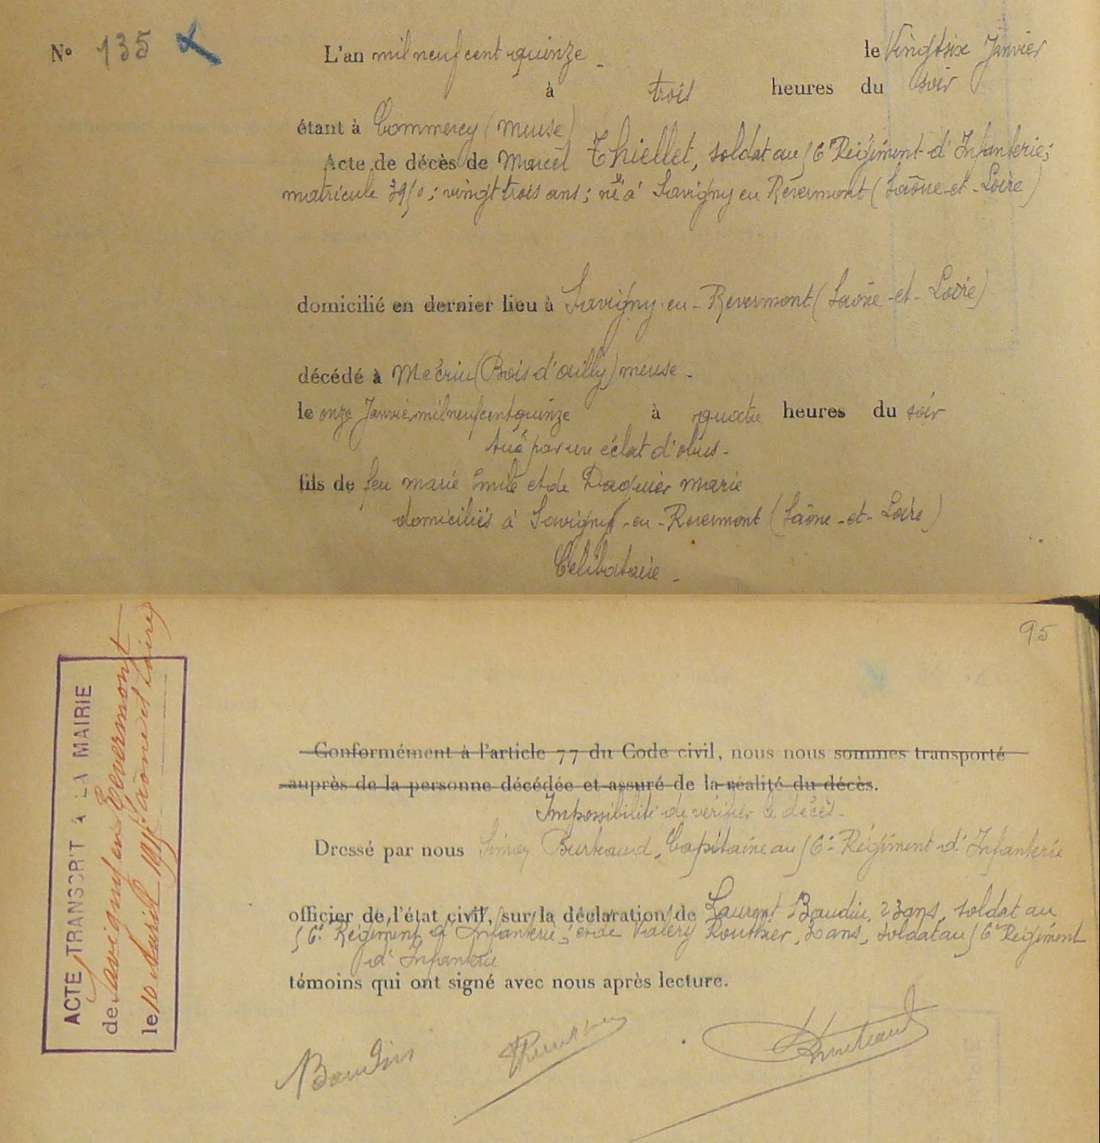 N° 135
L'an mil neuf cent quinze le Vingt six Janvier
à trois heures du soir
étant à Commercy (Meuse)
Acte de décès de Marcel Thiellet, soldat au 56e Régiment d'Infanterie;
matricule 3950; vingt trois ans; né à Savigny en Revermont (Saône-et-Loire)
domicilié en dernier lieu à Savigny-en-Revermont (Saône-et-Loire)
décédé à Mécrin (Bois d'ailly) meuse.
le onze Janvier mil neuf cent quinze à quatre heures du soir
tué par un éclat d'obus.
fils de feu marie Emile et de Daguier marie
domiciliés à Savigny-en-Revermont (Saône-et-Loire)
Célibataire.
95
ACTE TRANSCRIT A LA MAIRIE
de Savigny en Revermont
(Saône et Loire)
le 10 Avril 1915
Conformément à l'article 77 du Code civil, nous nous sommes transporté
auprès de la personne décédée et assuré de la réalité du décès.
Impossibilité de vérifier le décès.
Dressé par nous Burteaud, Capitaine au 56e Régiment d'Infanterie
officier de l'état civil, sur la déclaration de Laurent Baudin, 23 ans, soldat au
56e Régiment d'Infanterie; et de Valéry Routhier, 30 ans, soldat au 56e Régiment
d'Infanterie
témoins qui ont signé avec nous après lecture.
Baudin Burteaud